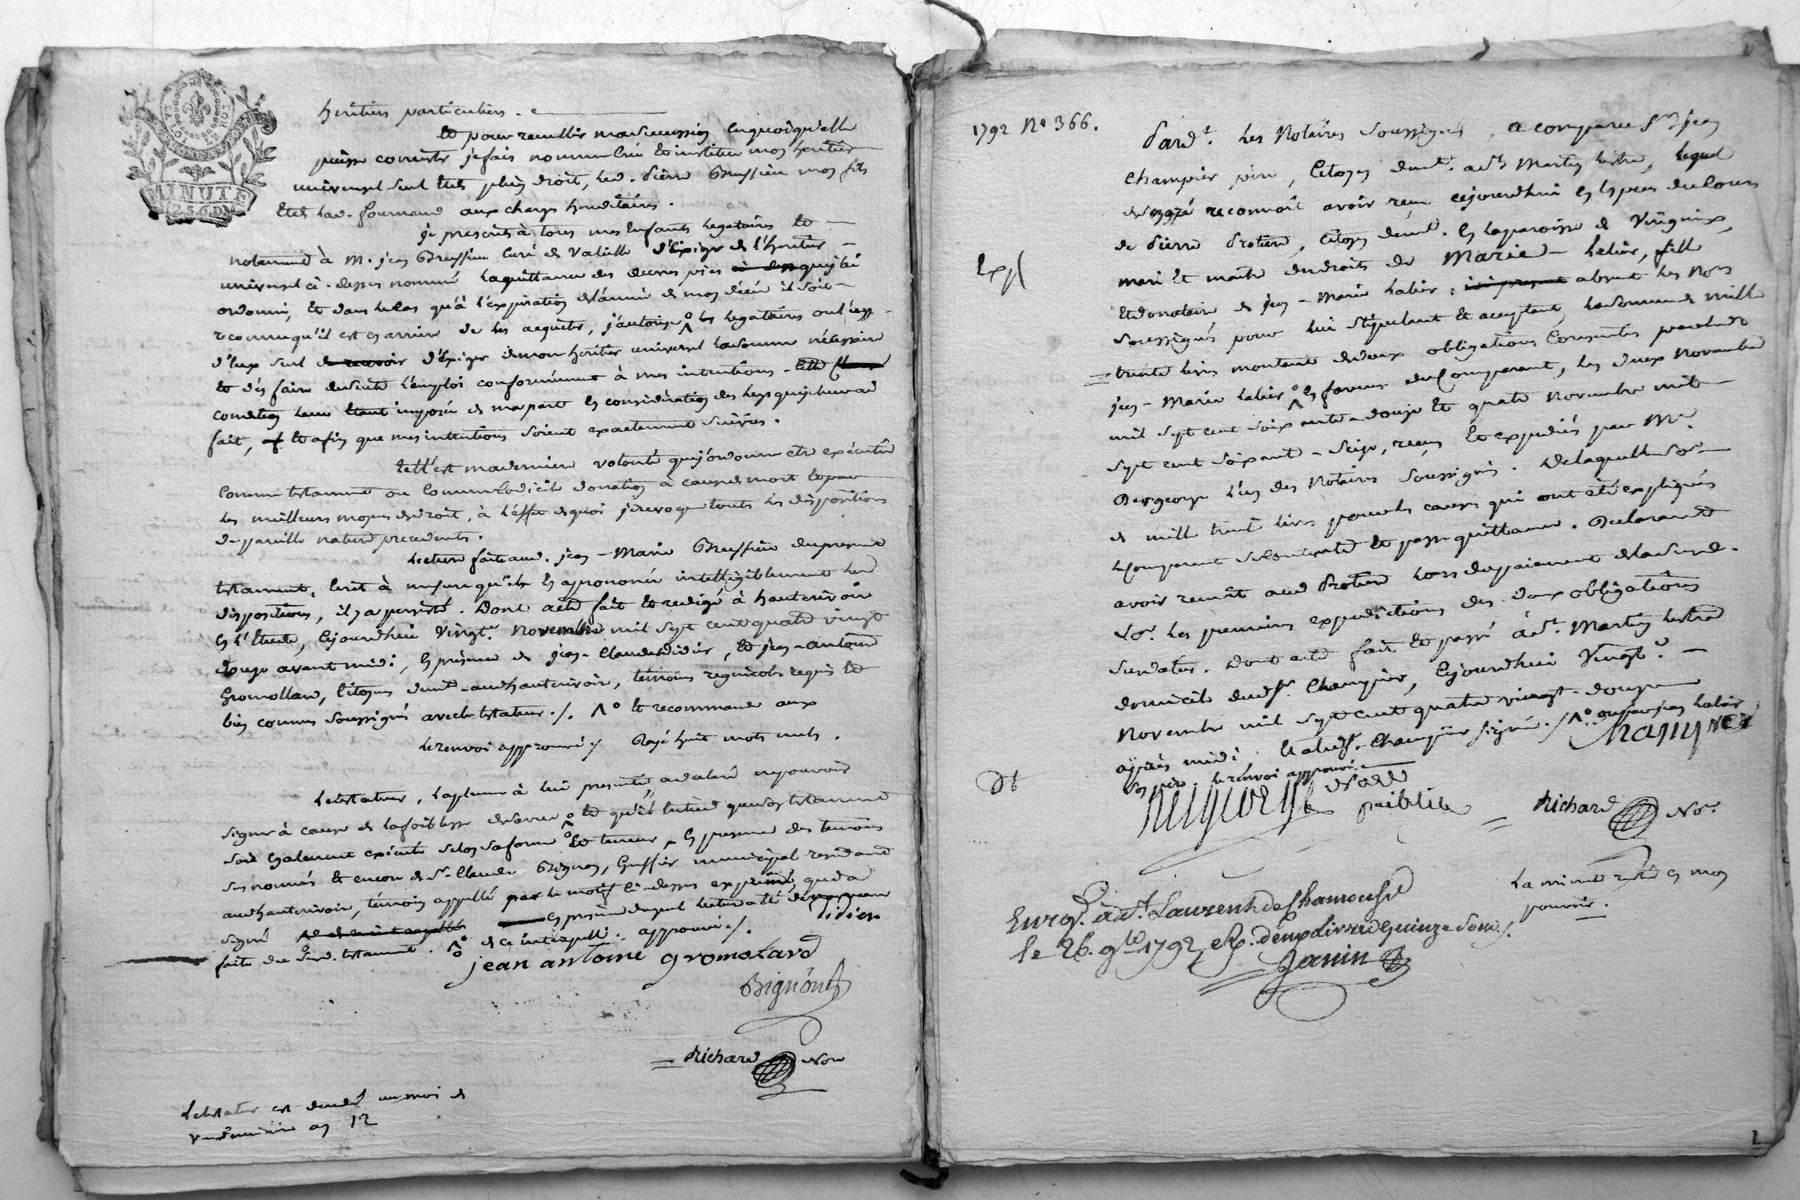 MINUTE
2.S.6.D.
héritiers particuliers.
Et pour recueillir ma succession en quoi qu'elle
puisse consister je fais nomme crée et institue mon héritier
universel seul et de plein droit, led. Pierre Brussieu mon fils
et de lad. fournand aux charges héréditaires.
Je prescris à tous mes enfants légataires et
notamment à M. jean Brussieu Curé de Valeille d'Exiger de l'héritier
universel ci-dessus nommé la quittance des œuvres pies que j'ai
ordonné, et dans le cas qu'à l'expiration de l'année de mon décès il soit
reconnu qu'il est en arrière de les acquitter, j'autorise les légataires ou l'un
d'eux seul d'Exiger de mon héritier universel la somme nécessaire
et d'en faire de suite l'emploi conformément à mes intentions
condition leur étant imposée de ma part en considération des legs que je leur ai
fait, et afin que mes intentions soient exactement suivies.
telle est ma dernière volonté que j'ordonne être exécutée
comme testament ou comme Codicile donation à cause de mort et par
les meilleurs moyens de droit, à l'effet de quoi je revoque toutes les dispositions
de pareille nature précédentes.
Lecture faite aud. jean-Marie Brussieu du présent
testament, écrit à mesure qu'il en a prononcé intelligiblement les
dispositions, il y a persisté. Dont acte fait et redigé à hauterivoire
en l'Etude, cejourdhui Vingt Novembre mil sept cent quatre vingt
douze avant midi, en présence de jean-Claude Didier, et jean-antoine
Gromollard, citoyens demt. aud hauterivoire, témoins regnicoles requis et
bien connus soussignés avec le testateur ./. et recommandé aux
le renvoi approuvé ./. Rayé huit mots nuls.
Le testateur, la plume à lui présentée, a déclaré ne pouvoir
signer à cause de la foiblesse de sa vue et qu'il entend que son testament
soit également exécuté selon sa forme et teneur, en présence des témoins
susnommés et encore de Sr. Claude Bignon, Greffier municipal résidant
aud hauterivoire, témoin appellé par le motif ci-dessus exprimé, qui a
signé
faite du susd. testament. de ce interpellé. approuvé ./. didier
jean antoine gromolard
Bignon
Richard Nore
Le testateur est décédé au mois de
Vendemiaire an 12
1792 No 366.
Pardt. les Notaires Soussignés, a comparu Sr. jean
Champier père, Citoyen demt. à St Martin lestra, lequel
de son gré reconnoit avoir reçu cejourdhui en Espèces du Cours
de Pierre Protière, Citoyen demt. en la paroisse de Virigneux,
mari et maître des droits de Marie Labie, fille
et donataire de jean-Marie Labie, absent les Nores
Soussignés pour lui stipulant et acceptant, la somme de mille
trente livres montant de deux obligations Consenties par led
jean-Marie Labie en faveur du Comparant, les deux Novembre
mil sept cent soixante-douze et quatre Novembre mil
sept cent soixante-seize, reçues et expediées par Me.
Desgeorge l'un des Notaires Soussignés. De laquelle somme
de mille trente livres pour les causes qui ont été expliquées
le Comparant se contente et passe quittance. Declarant
avoir remit aud Protière lors du paiement de lad. somme
les premières expeditions des deux obligations
susdatées. Dont acte fait et passé à St. Martin lestra
domicile dud Sr. Champier, cejourdhui Vingt
Novembre mil sept cent quatre vingt-douze
après midi. Et a led Sr. Champier signé ./.
le renvoi approuvé.
Desgeorge Nore
publiq
Richard Nore.
la minute restée en mon
pouvoir.
Enrgé. à St. Laurent de Chamousse
le 26. 9bre 1792 R. deux livres quinze sous ./.
Janin